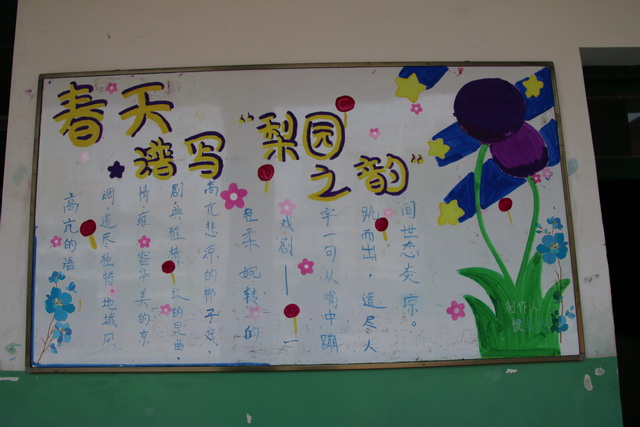 春天
谱写“梨园
之韵”
高亢的语
调,道尽独特地域风
情 华美的京
剧典雅精 的昆曲,
高亢悲凉的梆子戏,
柔婉转的
戏剧——一
字一句从嘴中蹦
跳而出,道尽人
间世态炎凉。
制作人